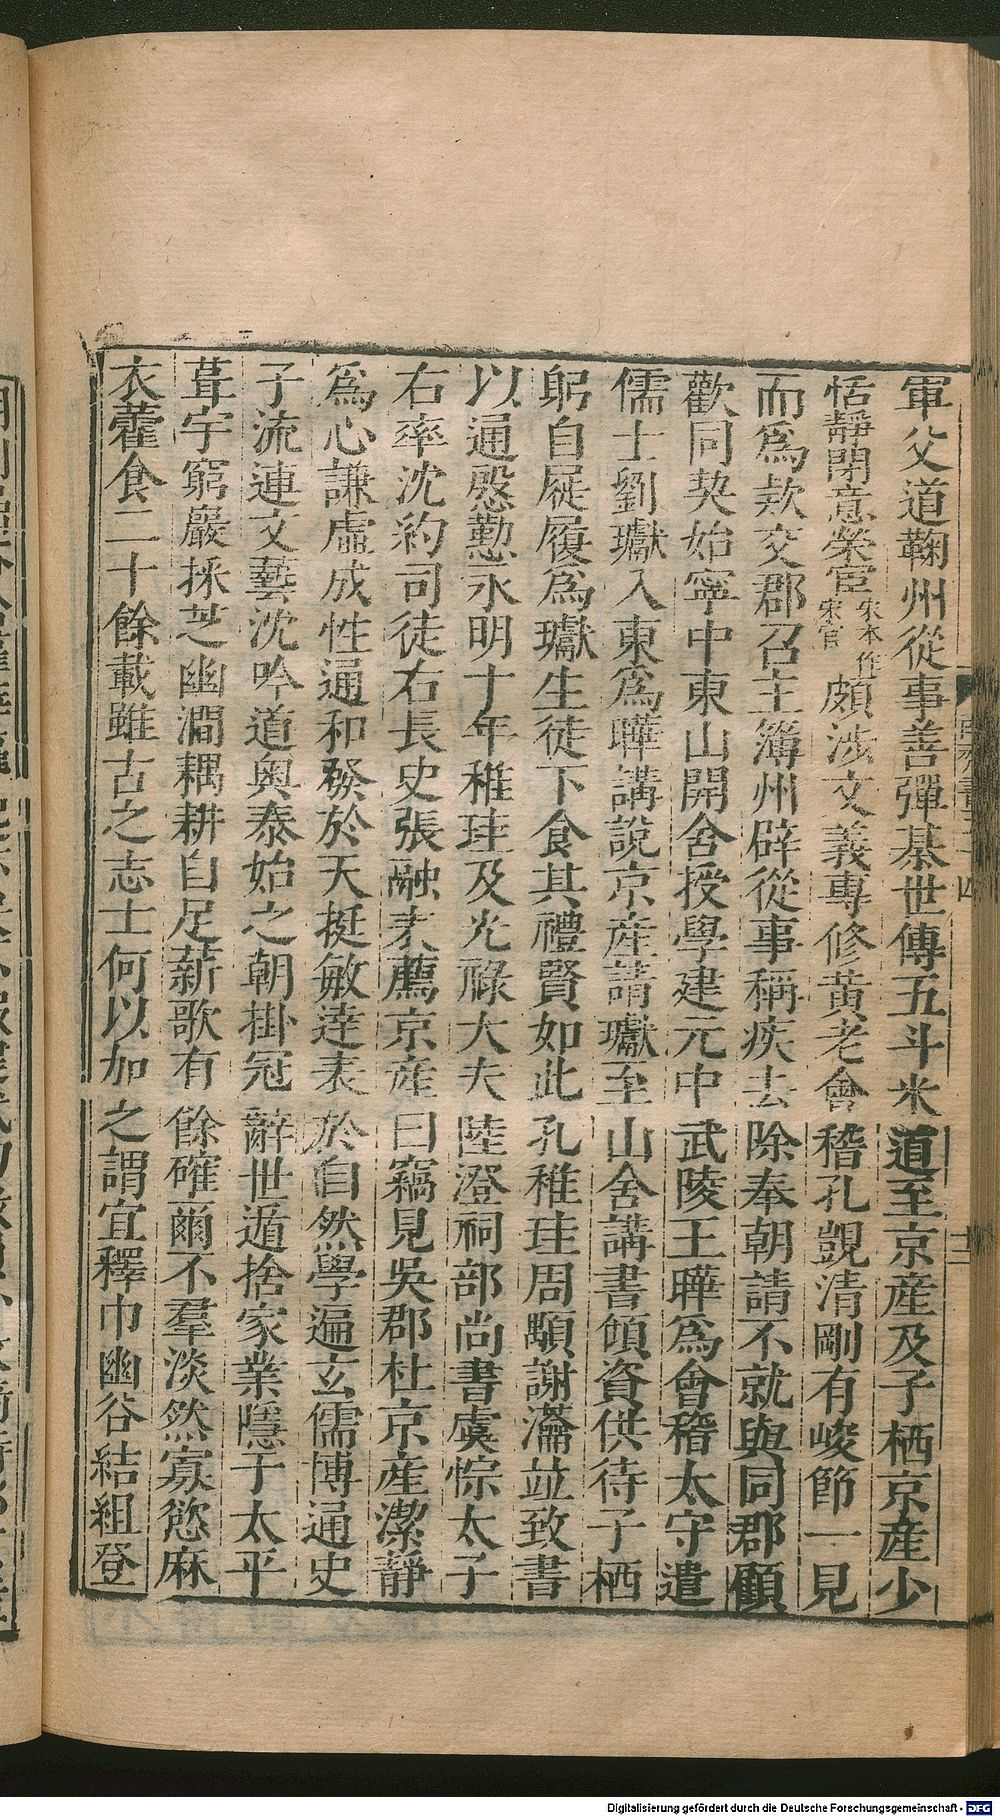 軍父道鞠州從事善彈棊世傳五斗米道至京産及子栖京産少
恬靜閉意榮宦宋本作宋官頗涉文義專修黃老會稽孔覬清剛有峻節一見
而爲欵交郡召主簿州辟從事稱疾去除奉朝請不就與同郡顧
歡同契始寧中東山開舍授學建元中武陵王曄爲會稽太守遣
儒士劉瓛入東爲曄講說京産請瓛至山舍講書傾資供待子栖
躬自屣履爲瓛生徒下食其禮賢如此孔稚珪周顒謝瀹並致書
以通慇懃永明十年稚珪及光祿大夫陸澄祠部尚書虞悰太子
右率沈約司徒右長史張融表薦京産曰竊見吳郡杜京産潔靜
爲心謙虛成性通和發於天挺敏達表於自然學遍玄儒博通史
子流連文藝沈吟道奧泰始之朝掛冠辭世遁捨家業隱于太平
葺宇窮巖採芝幽澗耦耕自足薪歌有餘確爾不羣淡然寡慾麻
衣藿食二十餘載雖古之志士何以加之謂宜釋巾幽谷結組登
Digitalisierung gefördert durch die Deutsche Forschungsgemeinschaft - DFG